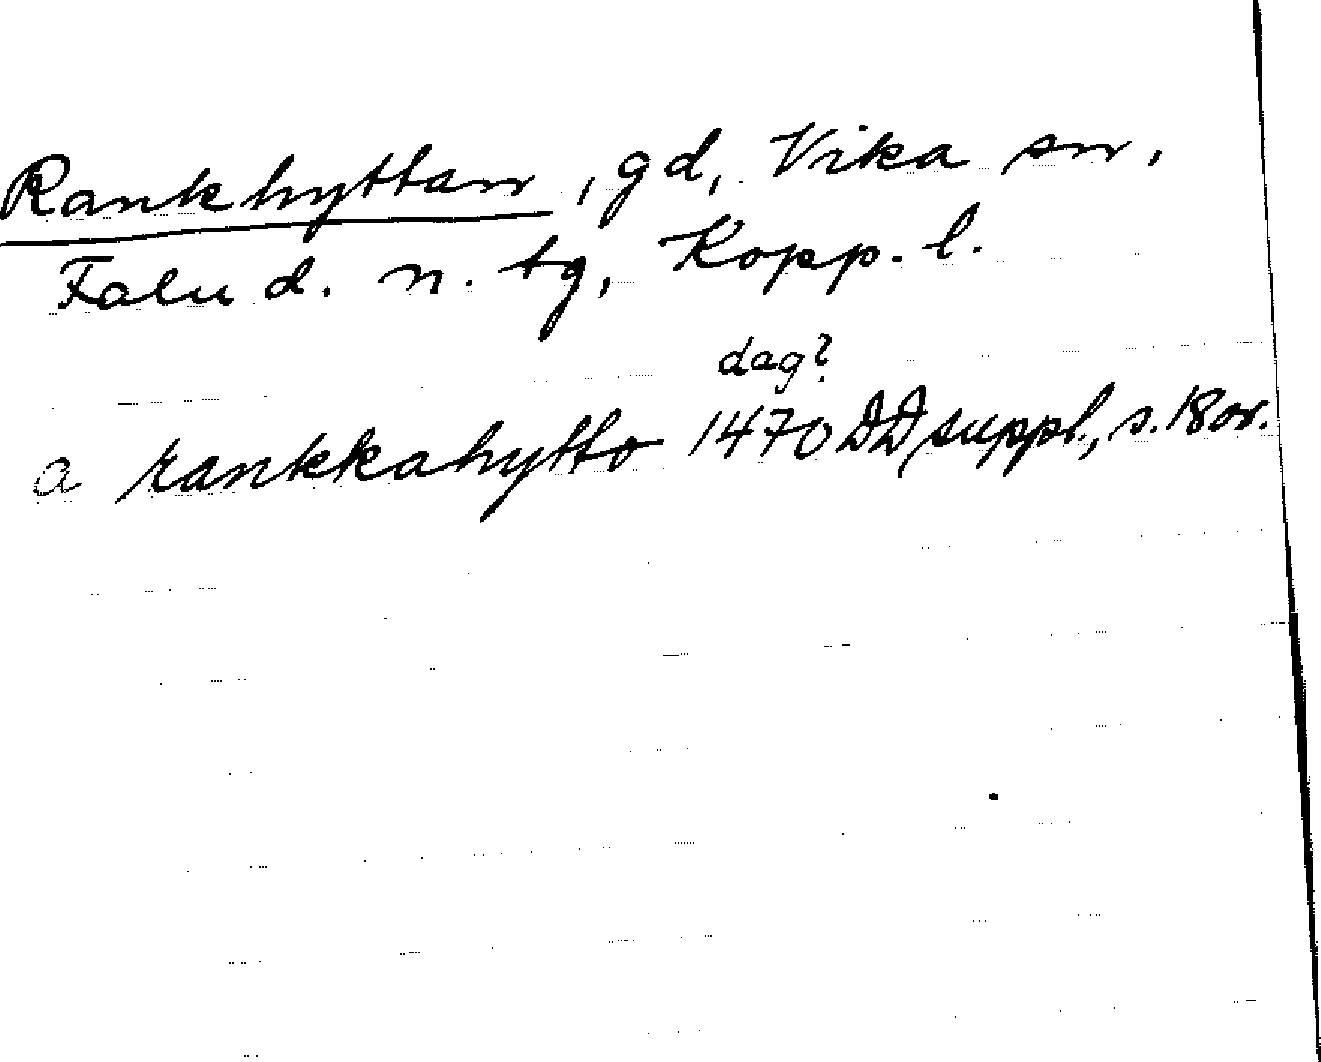 Rankhyttan, gd, Vika sn,
Falu d. n. tg, Kopp. l.
dag?
a rankkahytto 1470 DD suppl., s. 180r.